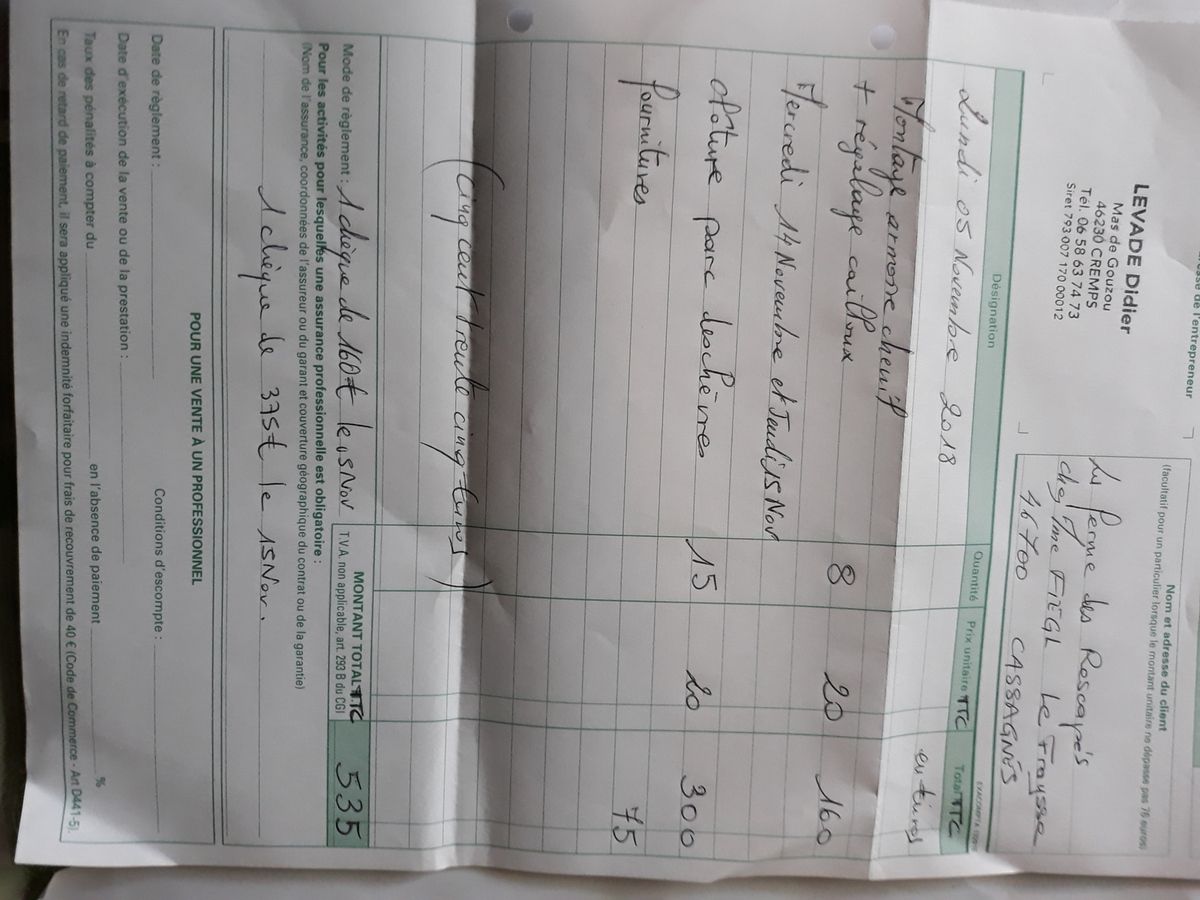 de l'entrepreneur
LEVADE Didier
Mas de Gouzou
46230 CREMPS
Tél. 06 58 63 74 73
Siret 793 007 170 00012
Nom et adresse du client
(facultatif pour un particulier lorsque le montant unitaire ne dépasse pas 76 euros)
La ferme des Rescapés
chez Mme FIEGL Le Fraysse
46700 CASSAGNES
Désignation Quantité Prix unitaire TTC Total TTC
Lundi 05 Novembre 2018 en Euros
Montage armoire chenil
+ régalage cailloux 8 20 160
Mercredi 14 Novembre et Jeudi 15 Nov
clôture parc des chèvres 15 20 300
fournitures 75
(cinq cent trente cinq euros)
MONTANT TOTAL TTC 535
T.V.A. non applicable, art. 293 B du CGI
Mode de règlement : 1 chèque de 160€ le 05 Nov
Pour les activités pour lesquelles une assurance professionnelle est obligatoire :
(Nom de l'assurance, coordonnées de l'assureur ou du garant et couverture géographique du contrat ou de la garantie)
1 chèque de 375€ le 15 Nov.
POUR UNE VENTE À UN PROFESSIONNEL
Date de règlement : Conditions d'escompte :
Date d'exécution de la vente ou de la prestation :
Taux des pénalités à compter du en l'absence de paiement %
En cas de retard de paiement, il sera appliqué une indemnité forfaitaire pour frais de recouvrement de 40 € (Code de Commerce - Art D441-5).